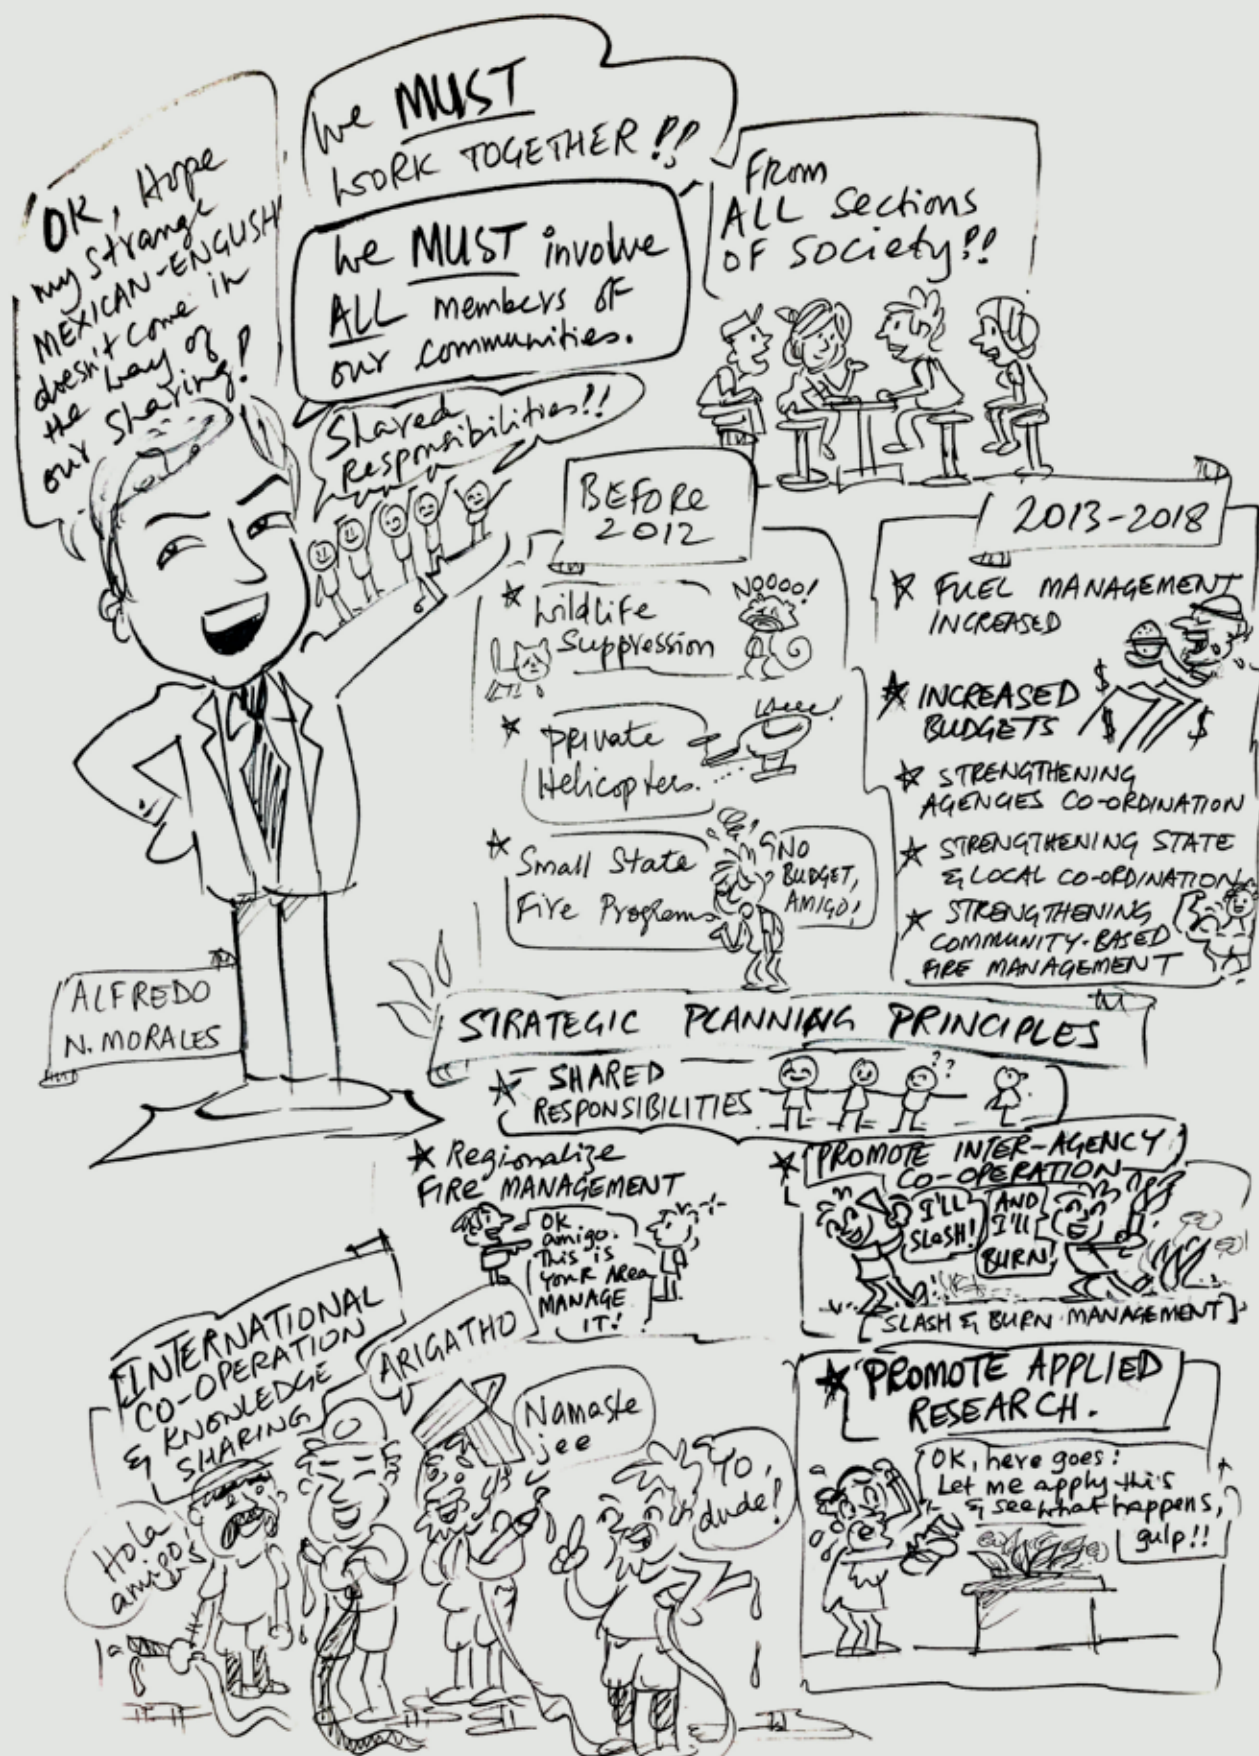 OK, Hope
my strange
MEXICAN-ENGLISH
doesn't come in
the way of
our sharing!
We MUST
WORK TOGETHER!!
We MUST involve
ALL members of
our communities.
From
ALL sections
OF society!!
Shared
Responsibilities!!
ALFREDO
N. MORALES
BEFORE
2012
★ Wildlife
Suppression
NOOOO!
★ Private
Helicopters.
★ Small State
Fire Programs
NO
BUDGET,
AMIGO!
2013-2018
★ FUEL MANAGEMENT
INCREASED
★ INCREASED
BUDGETS
$
$
$
★ STRENGTHENING
AGENCIES CO-ORDINATION
★ STRENGTHENING STATE
& LOCAL CO-ORDINATION
★ STRENGTHENING
COMMUNITY-BASED
FIRE MANAGEMENT
STRATEGIC PLANNING PRINCIPLES
★ SHARED
RESPONSIBILITIES
??
★ Regionalize
FIRE MANAGEMENT
OK
amigo.
This is
YOUR AREA
MANAGE
IT!
★ PROMOTE INTER-AGENCY
CO-OPERATION
I'LL
SLASH!
AND
I'LL
BURN!
SLASH & BURN MANAGEMENT
INTERNATIONAL
CO-OPERATION
& KNOWLEDGE
SHARING
Hola
amigo's
ARIGATHO
Namaste
jee
Yo,
dude!
★ PROMOTE APPLIED
RESEARCH.
OK, here goes!
Let me apply this
& see what happens,
gulp!!